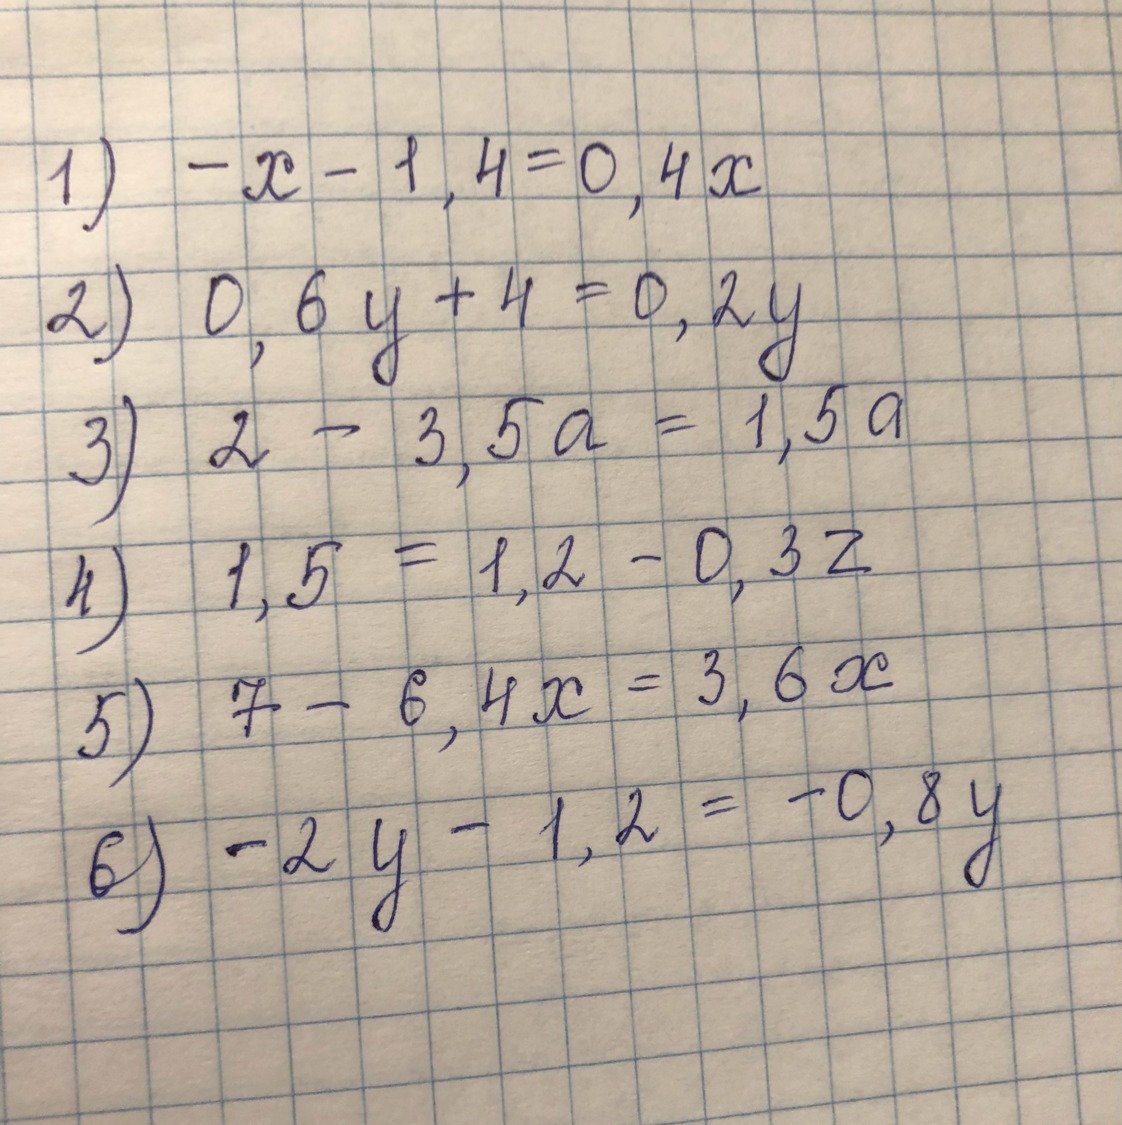 1) -x - 1,4 = 0,4x
2) 0,6y + 4 = 0,2y
3) 2 - 3,5a = 1,5a
4) 1,5 = 1,2 - 0,3z
5) 7 - 6,4x = 3,6x
6) -2y - 1,2 = -0,8y